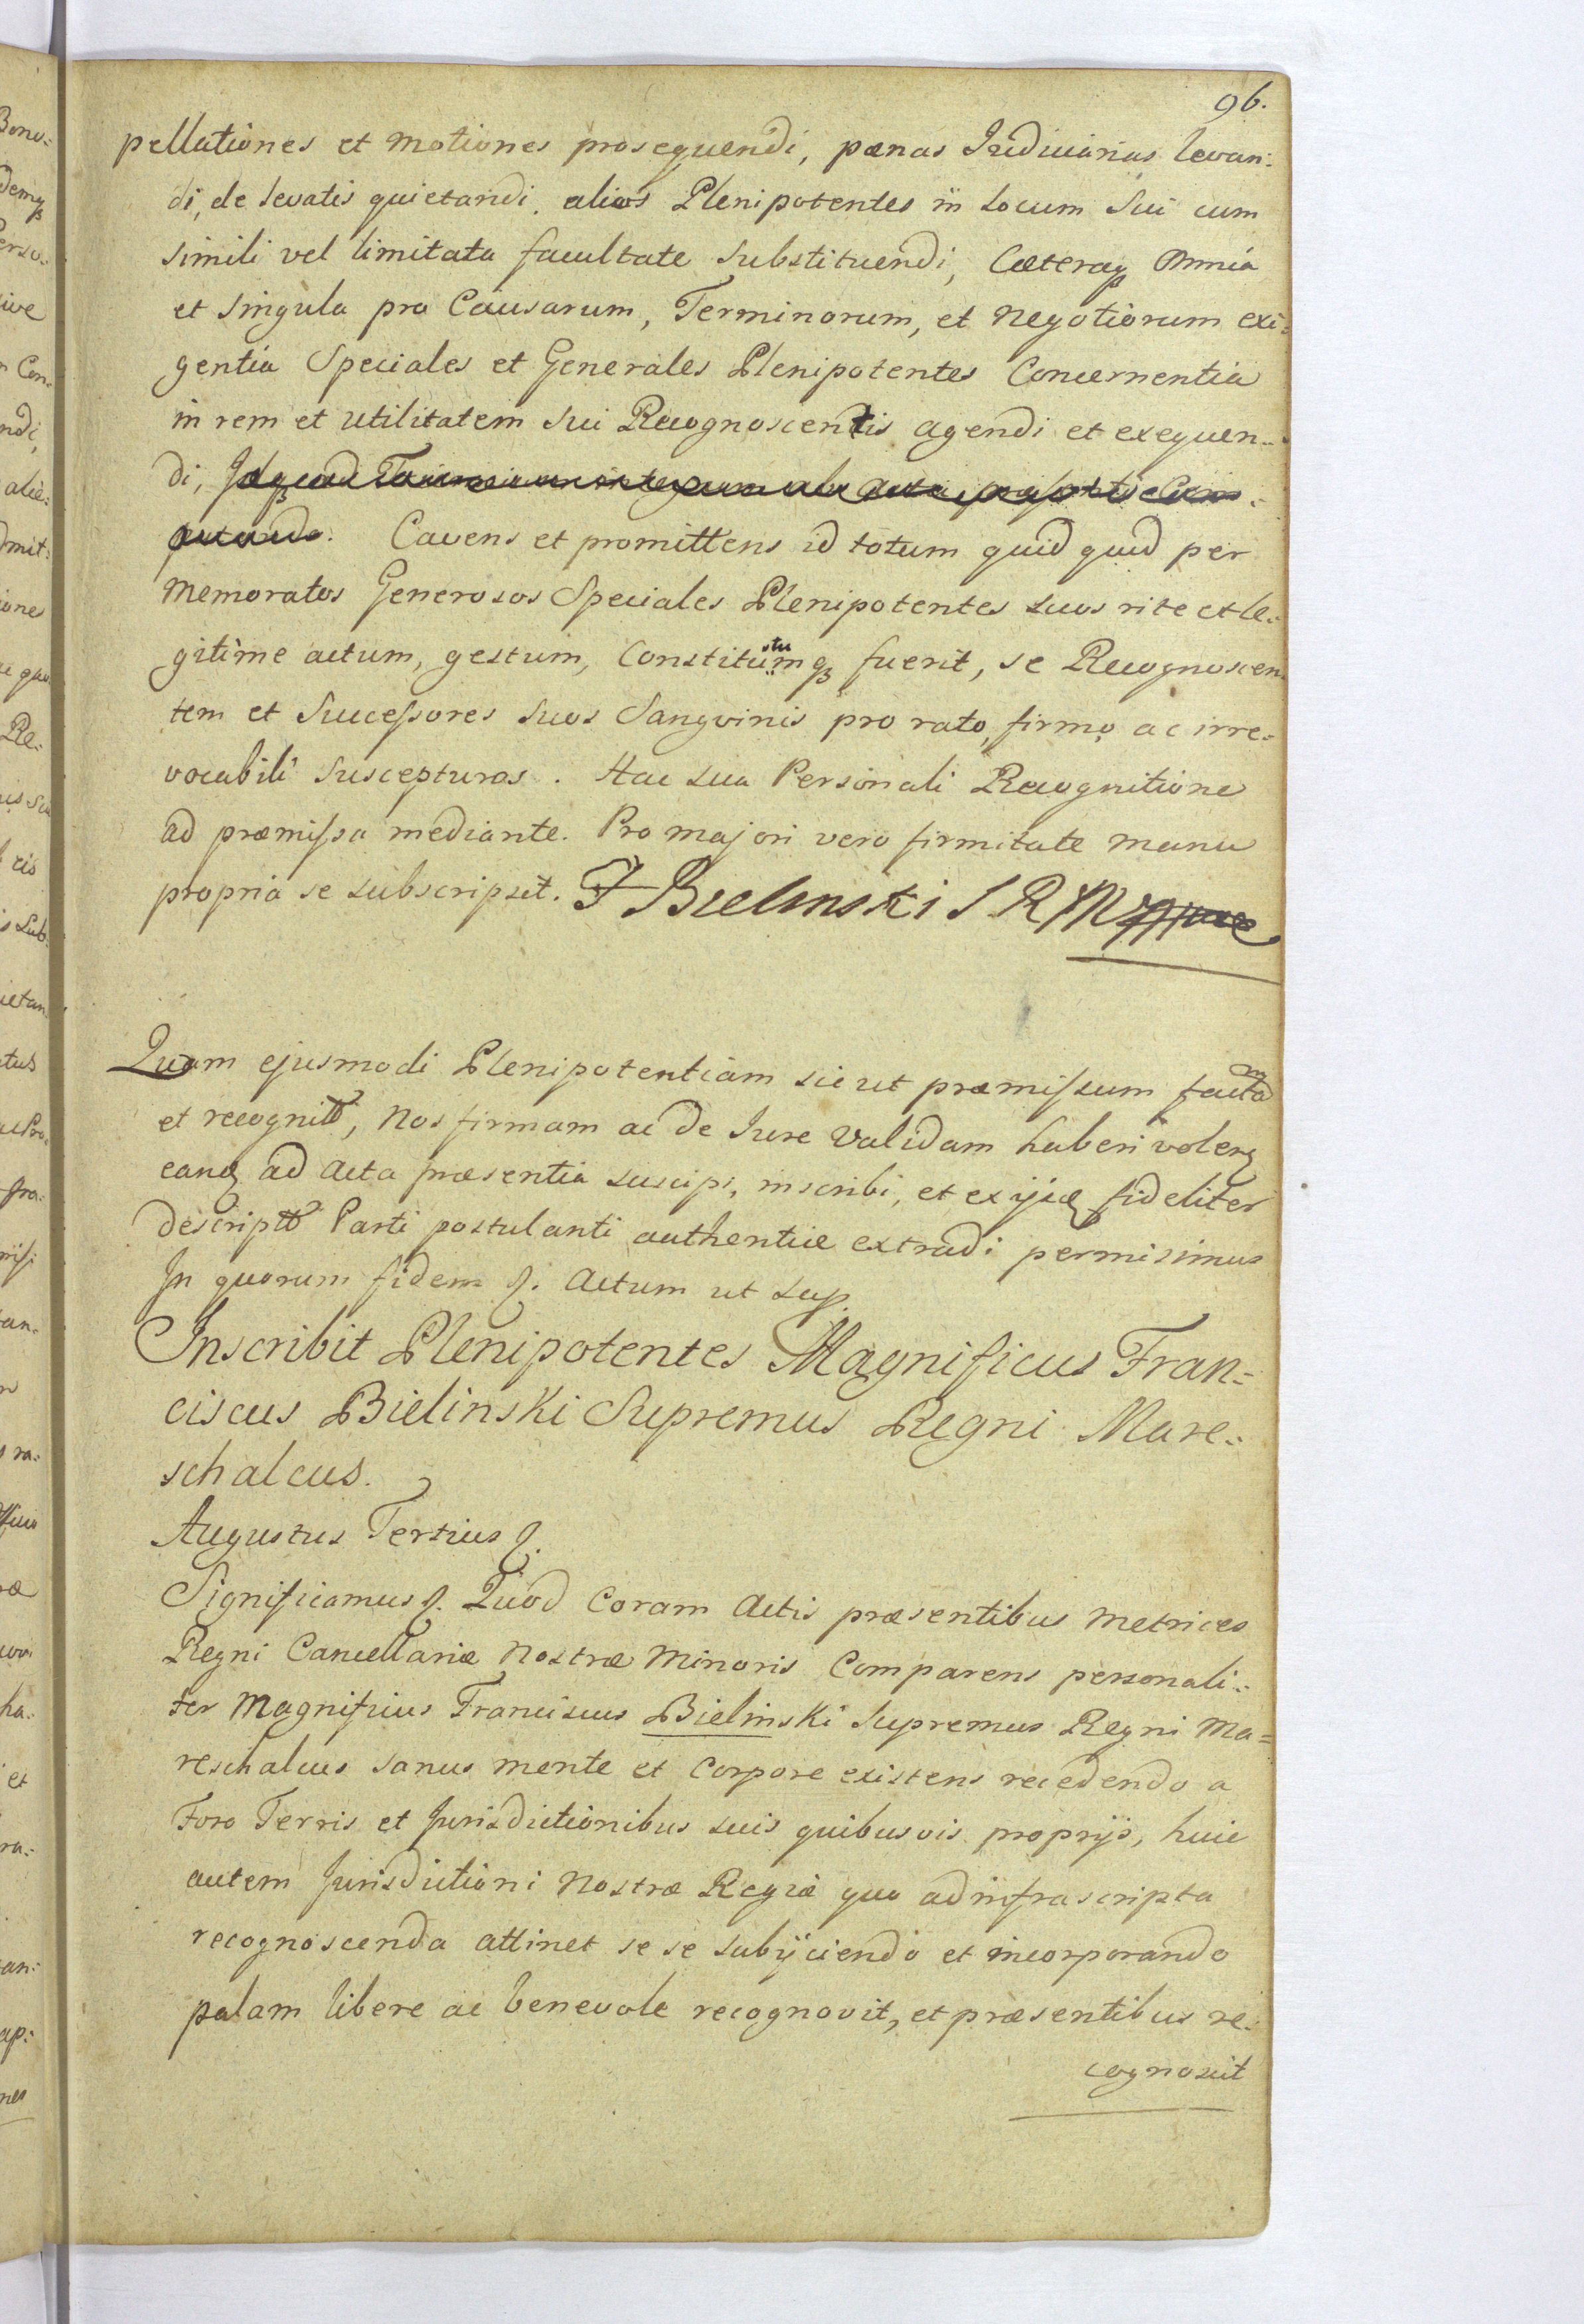 96.
pellationes et motiones prosequendi, pænas Judiciarias levan:
di, de levatis quietandi. alios Plenipotentes in Locum Sui cum
simili vel limitata facultate substituendi, Cæteraqꝫ Omnia
et Singula pro Causarum, Terminorum, et Negotiorum exi:
gentia Speciales et Generales Plenipotentes Concernentia
in rem et utilitatem sui Recognoscentis agendi et exequen:
di,
Cavens et promittens id totum quid quid per
Memoratos Generosos Speciales Plenipotentes suos rite et le:
gitime actum, gestum, Constitutumqꝫ fuerit, se Recognoscen
tem et Successores Suos Sangvinis pro rato, firmo ac irre:
vocabili Suscepturos. Hac sua Personali Recognitione
ad præmissa mediante. Pro majori vero firmitate manu
propria se subscripsit. F Bielinski S R M
Quam ejusmodi Plenipotentiam sicut præmissum facta
et recognit, Nos firmam ac de Jure Validam haberi volenꝫ
eanqꝫ ad Acta præsentia suscipi, inscribi, et ex ijsqꝫ fideliter
descript Parti postulanti authentice extradi permisimus
In quorum fidem &. Actum ut sup.
Inscribit Plenipotentes Magnificus Fran:
ciscus Bielinski Supremus Regni Mare:
schalcus.
Augustus Tertius &.
Significamus &. Quod Coram Actis præsentibus Metrices
Regni Cancellariæ Nostræ Minoris Comparens personali:
ter Magnificus Franciscus Bielinski Supremus Regni Ma=
reschalcus sanus mente et Corpore existens recedendo a
Foro Terris et Jurisdictionibus suis quibusvis proprijs, huic
autem Jurisdictioni Nostræ Regiæ quo ad infrascripta
recognoscenda attinet se se subijciendo et incorporando
palam libere ac benevole recognovit, et præsentibus re:
cognoscit